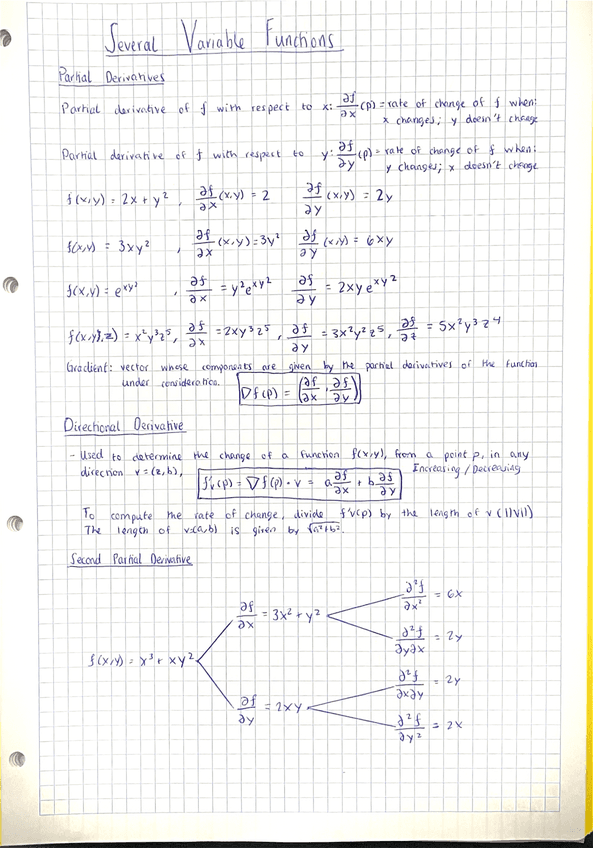 Several Variable Functions
Partial Derivatives
Partial derivative of f with respect to x: ∂f/∂x (p) = rate of change of f when:
x changes; y doesn't change
Partial derivative of f with respect to y: ∂f/∂y (p) = rate of change of f when:
y changes; x doesn't change
f(x,y) = 2x + y², ∂f/∂x (x,y) = 2 ∂f/∂y (x,y) = 2y
f(x,y) = 3xy², ∂f/∂x (x,y) = 3y² ∂f/∂y (x,y) = 6xy
f(x,y) = e^(xy²), ∂f/∂x = y²e^(xy²) ∂f/∂y = 2xye^(xy²)
f(x,y,z) = x²y³z⁵, ∂f/∂x = 2xy³z⁵, ∂f/∂y = 3x²y²z⁵, ∂f/∂z = 5x²y³z⁴
Gradient: vector whose components are given by the partial derivatives of the function
under consideration. ∇f(p) = (∂f/∂x, ∂f/∂y)
Directional Derivative
- Used to determine the change of a function f(x,y), from a point p, in any
direction v = (a,b), f'v(p) = ∇f(p) · v = a ∂f/∂x + b ∂f/∂y Increasing / Decreasing
To compute the rate of change, divide f'v(p) by the length of v (||v||)
The length of v=(a,b) is given by √(a²+b²).
Second Partial Derivative
f(x,y) = x³ + xy²
∂f/∂x = 3x² + y²
∂²f/∂x² = 6x
∂²f/∂y∂x = 2y
∂f/∂y = 2xy
∂²f/∂x∂y = 2y
∂²f/∂y² = 2x